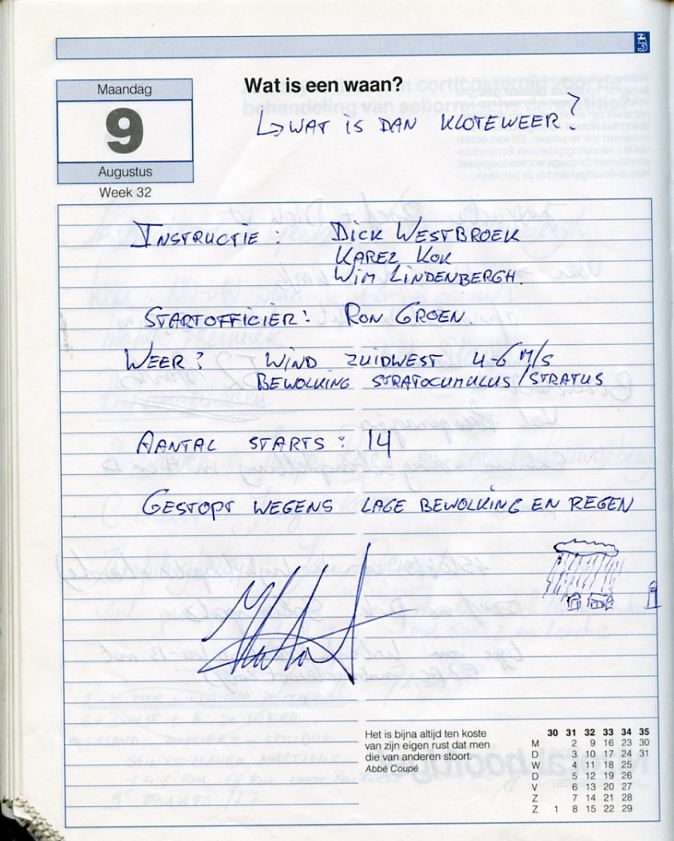 Maandag
9
Augustus
Week 32
Wat is een waan?
↳ WAT IS DAN KLOTEWEER?
INSTRUCTIE: DICK WESTBROEK
KAREL KOK
WIM LINDENBERGH.
STARTOFFICIER: RON GROEN.
WEER? WIND ZUIDWEST 4-6 M/S
BEWOLKING STRATOCUMULUS/STRATUS
AANTAL STARTS: 14
GESTOPT WEGENS LAGE BEWOLKING EN REGEN
Het is bijna altijd ten koste
van zijn eigen rust dat men
die van anderen stoort.
Abbé Coupé
30 31 32 33 34 35
M 2 9 16 23 30
D 3 10 17 24 31
W 4 11 18 25
D 5 12 19 26
V 6 13 20 27
Z 7 14 21 28
Z 1 8 15 22 29